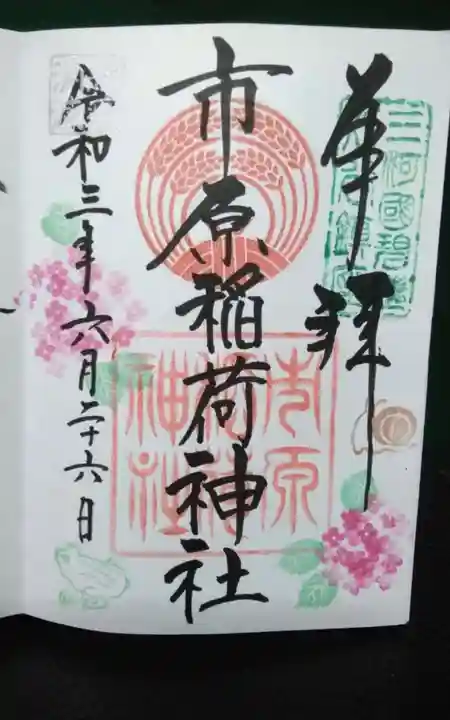 奉拜
三河國碧海
市原稲荷神社
市原稲荷神社
令和三年六月二十六日